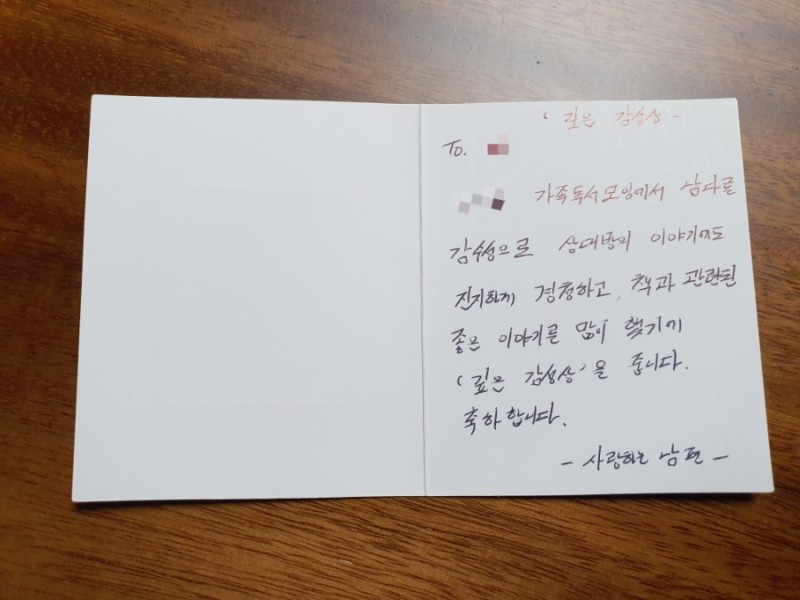 '깊은 감성상-
To.
가족독서모임에서 남다른
감수성으로 상대방의 이야기에도
진지하게 경청하고, 책과 관련된
좋은 이야기를 많이 했기에
'깊은 감성상'을 줍니다.
축하합니다.
- 사랑하는 남편 -